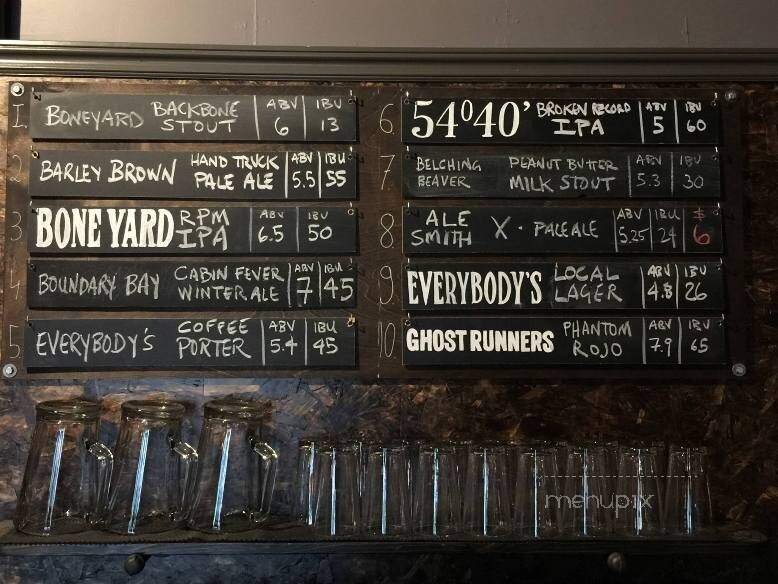 1. BONEYARD BACKBONE STOUT ABV 6 IBU 13
2 BARLEY BROWN HAND TRUCK PALE ALE ABV 5.5 IBU 55
3 BONE YARD RPM IPA ABV 6.5 IBU 50
4 BOUNDARY BAY CABIN FEVER WINTER ALE ABV 7 IBU 45
5 EVERYBODY'S COFFEE PORTER ABV 5.4 IBU 45
6 54°40' BROKEN RECORD IPA ABV 5 IBU 60
7 BELCHING BEAVER PEANUT BUTTER MILK STOUT ABV 5.3 IBU 30
8 ALE SMITH X - PALE ALE ABV 5.25 IBU 24 $6
9 EVERYBODY'S LOCAL LAGER ABV 4.8 IBU 26
10 GHOST RUNNERS PHANTOM ROJO ABV 7.9 IBU 65
menupix